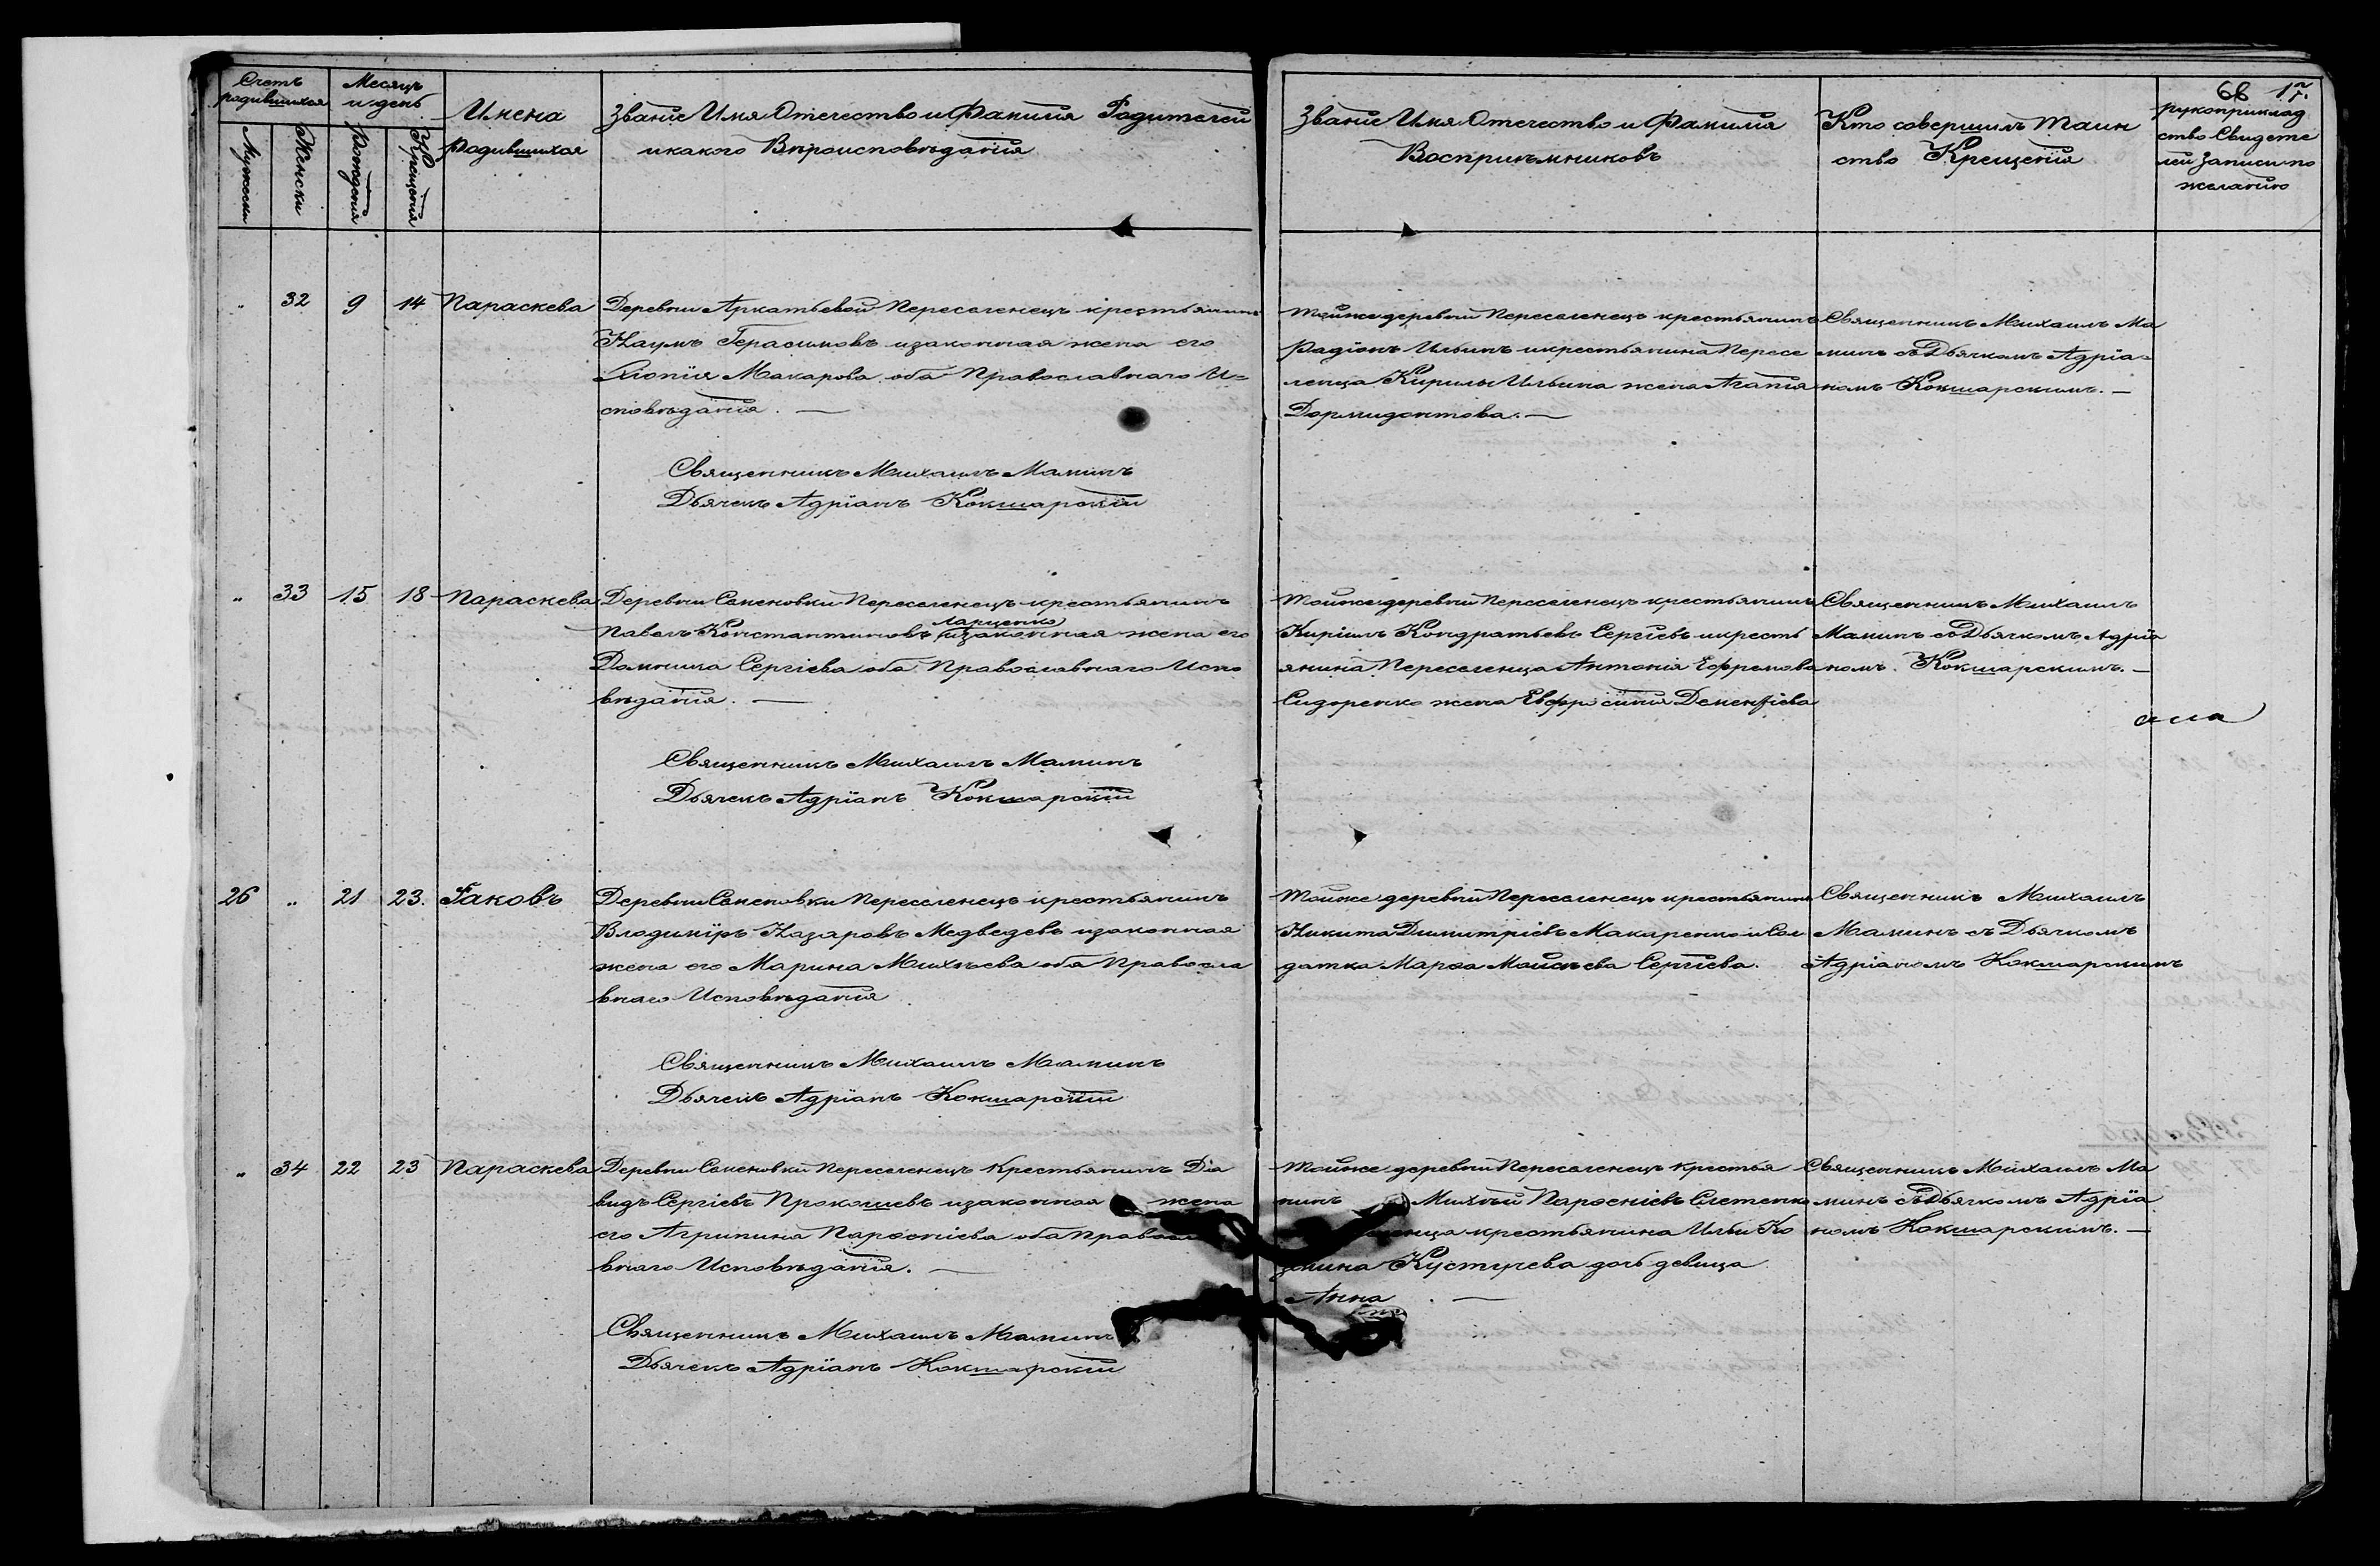 Счетъ родившихся
Месяцъ и день
Мужески
Женски
Рожденія
Крещенія
Имена
Родившихся
Званіе Имя Отечество и Фамилія Родителей
и какого Вѣроисповѣданія
Званіе Имя Отечество и Фамилія
Воспріемниковъ
Кто совершилъ Таин
ство Крещенія
68 17.
рукоприклад
ство Свидете
лей записи по
желанію
„ 32 9 14 Параскева
Деревни Аркатьевой Переселенецъ крестьянинъ
Наумъ Герасимовъ и законная жена его
Макарова оба Православнаго И=
сповѣданія. —
Священникъ Михаилъ Маминъ
Дьячекъ Адріанъ Кокшарскій
Той же деревни Переселенецъ крестьянинъ
Радіонъ Ильинъ и крестьянина Пересе
ленца Кирилы Ильина жена Агапія
Дормидонтова. —
Священникъ Михаилъ Ма
минъ съ Дьячкомъ Адріа-
номъ Кокшарскимъ. —
„ 33 15 18 Параскева
Деревни Семеновки Переселенецъ крестьянинъ
Лаценко
Павелъ Константиновъ и законная жена его
Домника Сергіева оба Православнаго Испо
вѣданія. —
Священникъ Михаилъ Маминъ
Дьячекъ Адріанъ Кокшарскій
Той же деревни Переселенецъ крестьянинъ
Кирилъ Кондратьевъ Сергіевъ и кресть
янина Переселенца Антонія Ефремова
Сидоренко жена Евфросинія Дементіева
Священникъ Михаилъ
Маминъ съ Дьячкомъ Адріа
номъ Кокшарскимъ. —
26 „ 21 23. Іаковъ
Деревни Семеновки Переселенецъ крестьянинъ
Владиміръ Назаровъ Медведевъ и законная
жена его Марина Михѣева оба Правосла
внаго Исповѣданія
Священникъ Михаилъ Маминъ
Дьячекъ Адріанъ Кокшарскій
Той же деревни Переселенецъ крестьянинъ
Никита Димитріевъ Макаренко и Сол
датка Марѳа Моисѣева Сергіева.
Священникъ Михаилъ
Маминъ съ Дьячкомъ
Адріаномъ Кокшарскимъ
„ 34 22 23 Параскева
Деревни Семеновки Переселенецъ Крестьянинъ Да
видъ Сергіевъ Прокошевъ и законная жена
его Агрипина Парѳеніева оба Правосл
внаго Исповѣданія. —
Священникъ Михаилъ Маминъ
Дьячекъ Адріанъ Кокшарскій
Той же деревни Переселенецъ Крестья
нинъ Михѣй Парѳеніевъ
енца крестьянина Ильи Ко
Кустугева дочь девица
Анна. —
Священникъ Михаилъ Ма
минъ съ Дьячкомъ Адріа
номъ Кокшарскимъ. —